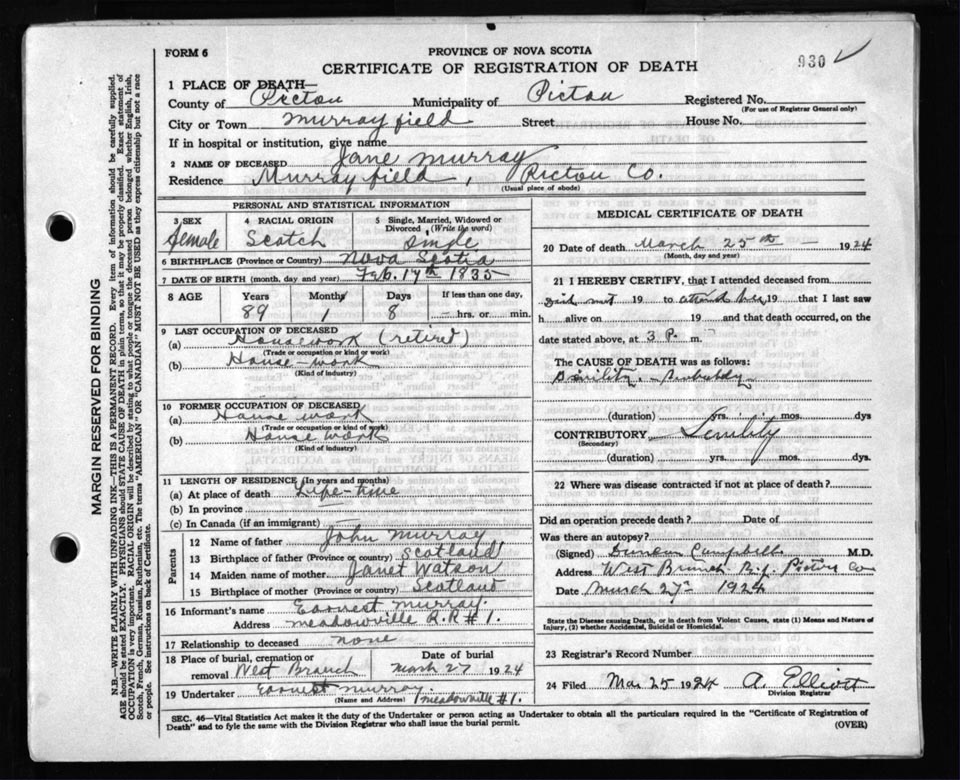 FORM 6
PROVINCE OF NOVA SCOTIA
930
CERTIFICATE OF REGISTRATION OF DEATH
1 PLACE OF DEATH—
County of Pictou Municipality of Pictou Registered No.
(For use of Registrar General only)
City or Town Murrayfield Street House No.
If in hospital or institution, give name
2 NAME OF DECEASED Jane Murray
Residence Murrayfield, Pictou Co.
(Usual place of abode)
PERSONAL AND STATISTICAL INFORMATION
3 SEX
Female
4 RACIAL ORIGIN
Scotch
5 Single, Married, Widowed or Divorced (Write the word)
Single
6 BIRTHPLACE (Province or Country) Nova Scotia
7 DATE OF BIRTH (month, day and year) Feb. 17th 1835
8 AGE Years Months Days If less than one day,
89 1 8 — hrs. or min.
9 LAST OCCUPATION OF DECEASED
(a) Housework (retired)
(Trade or occupation or kind or work)
(b) House work
(Kind of industry)
10 FORMER OCCUPATION OF DECEASED
(a) House work
(Trade or occupation or kind of work)
(b) House work
(Kind of industry)
11 LENGTH OF RESIDENCE (In years and months)
(a) At place of death Life-time
(b) In province
(c) In Canada (if an immigrant)
Parents
12 Name of father John Murray
13 Birthplace of father (Province or country) Scotland
14 Maiden name of mother Janet Watson
15 Birthplace of mother (Province or country) Scotland
16 Informant's name Earnest Murray.
Address Meadowville R.R #1.
17 Relationship to deceased none
18 Place of burial, cremation or removal West Branch Date of burial March 27 1924
19 Undertaker Earnest Murray.
(Name and Address) Meadowville #1.
MEDICAL CERTIFICATE OF DEATH
20 Date of death March 25th — 1924
(Month, day and year)
21 I HEREBY CERTIFY, that I attended deceased from
19 to 19 that I last saw
h alive on 19 and that death occurred, on the
date stated above, at 3 P. m.
The CAUSE OF DEATH was as follows:
(duration) yrs. mos. dys
CONTRIBUTORY Senility
(Secondary)
(duration) yrs. mos. dys.
22 Where was disease contracted if not at place of death?
Did an operation precede death? Date of
Was there an autopsy?
(Signed) Duncan Campbell M.D.
Address West Branch Pictou Co
Date March 27th 1924
State the Disease causing Death, or in death from Violent Causes, state (1) Means and Nature of
Injury, (2) whether Accidental, Suicidal or Homicidal.
23 Registrar's Record Number
24 Filed Mar 25 1924 A. Elliott
Division Registrar
SEC. 46—Vital Statistics Act makes it the duty of the Undertaker or person acting as Undertaker to obtain all the particulars required in the "Certificate of Registration of
Death" and to fyle the same with the Division Registrar who shall issue the burial permit.
(OVER)
MARGIN RESERVED FOR BINDING
N.B.—WRITE PLAINLY WITH UNFADING INK—THIS IS A PERMANENT RECORD. Every item of information should be carefully supplied.
AGE should be stated EXACTLY. PHYSICIANS should STATE CAUSE OF DEATH in plain terms, so that it may be properly classified. Exact statement of
OCCUPATION is very important. RACIAL ORIGIN will be described by stating to what people or tongue the deceased person belonged whether English, Irish,
Scotch, French, German, Russian, Ruthenian, etc. The terms "AMERICAN OR "CANADIAN" MUST NOT BE USED as they express citizenship but not a race
or people. See instructions on back of Certificate.